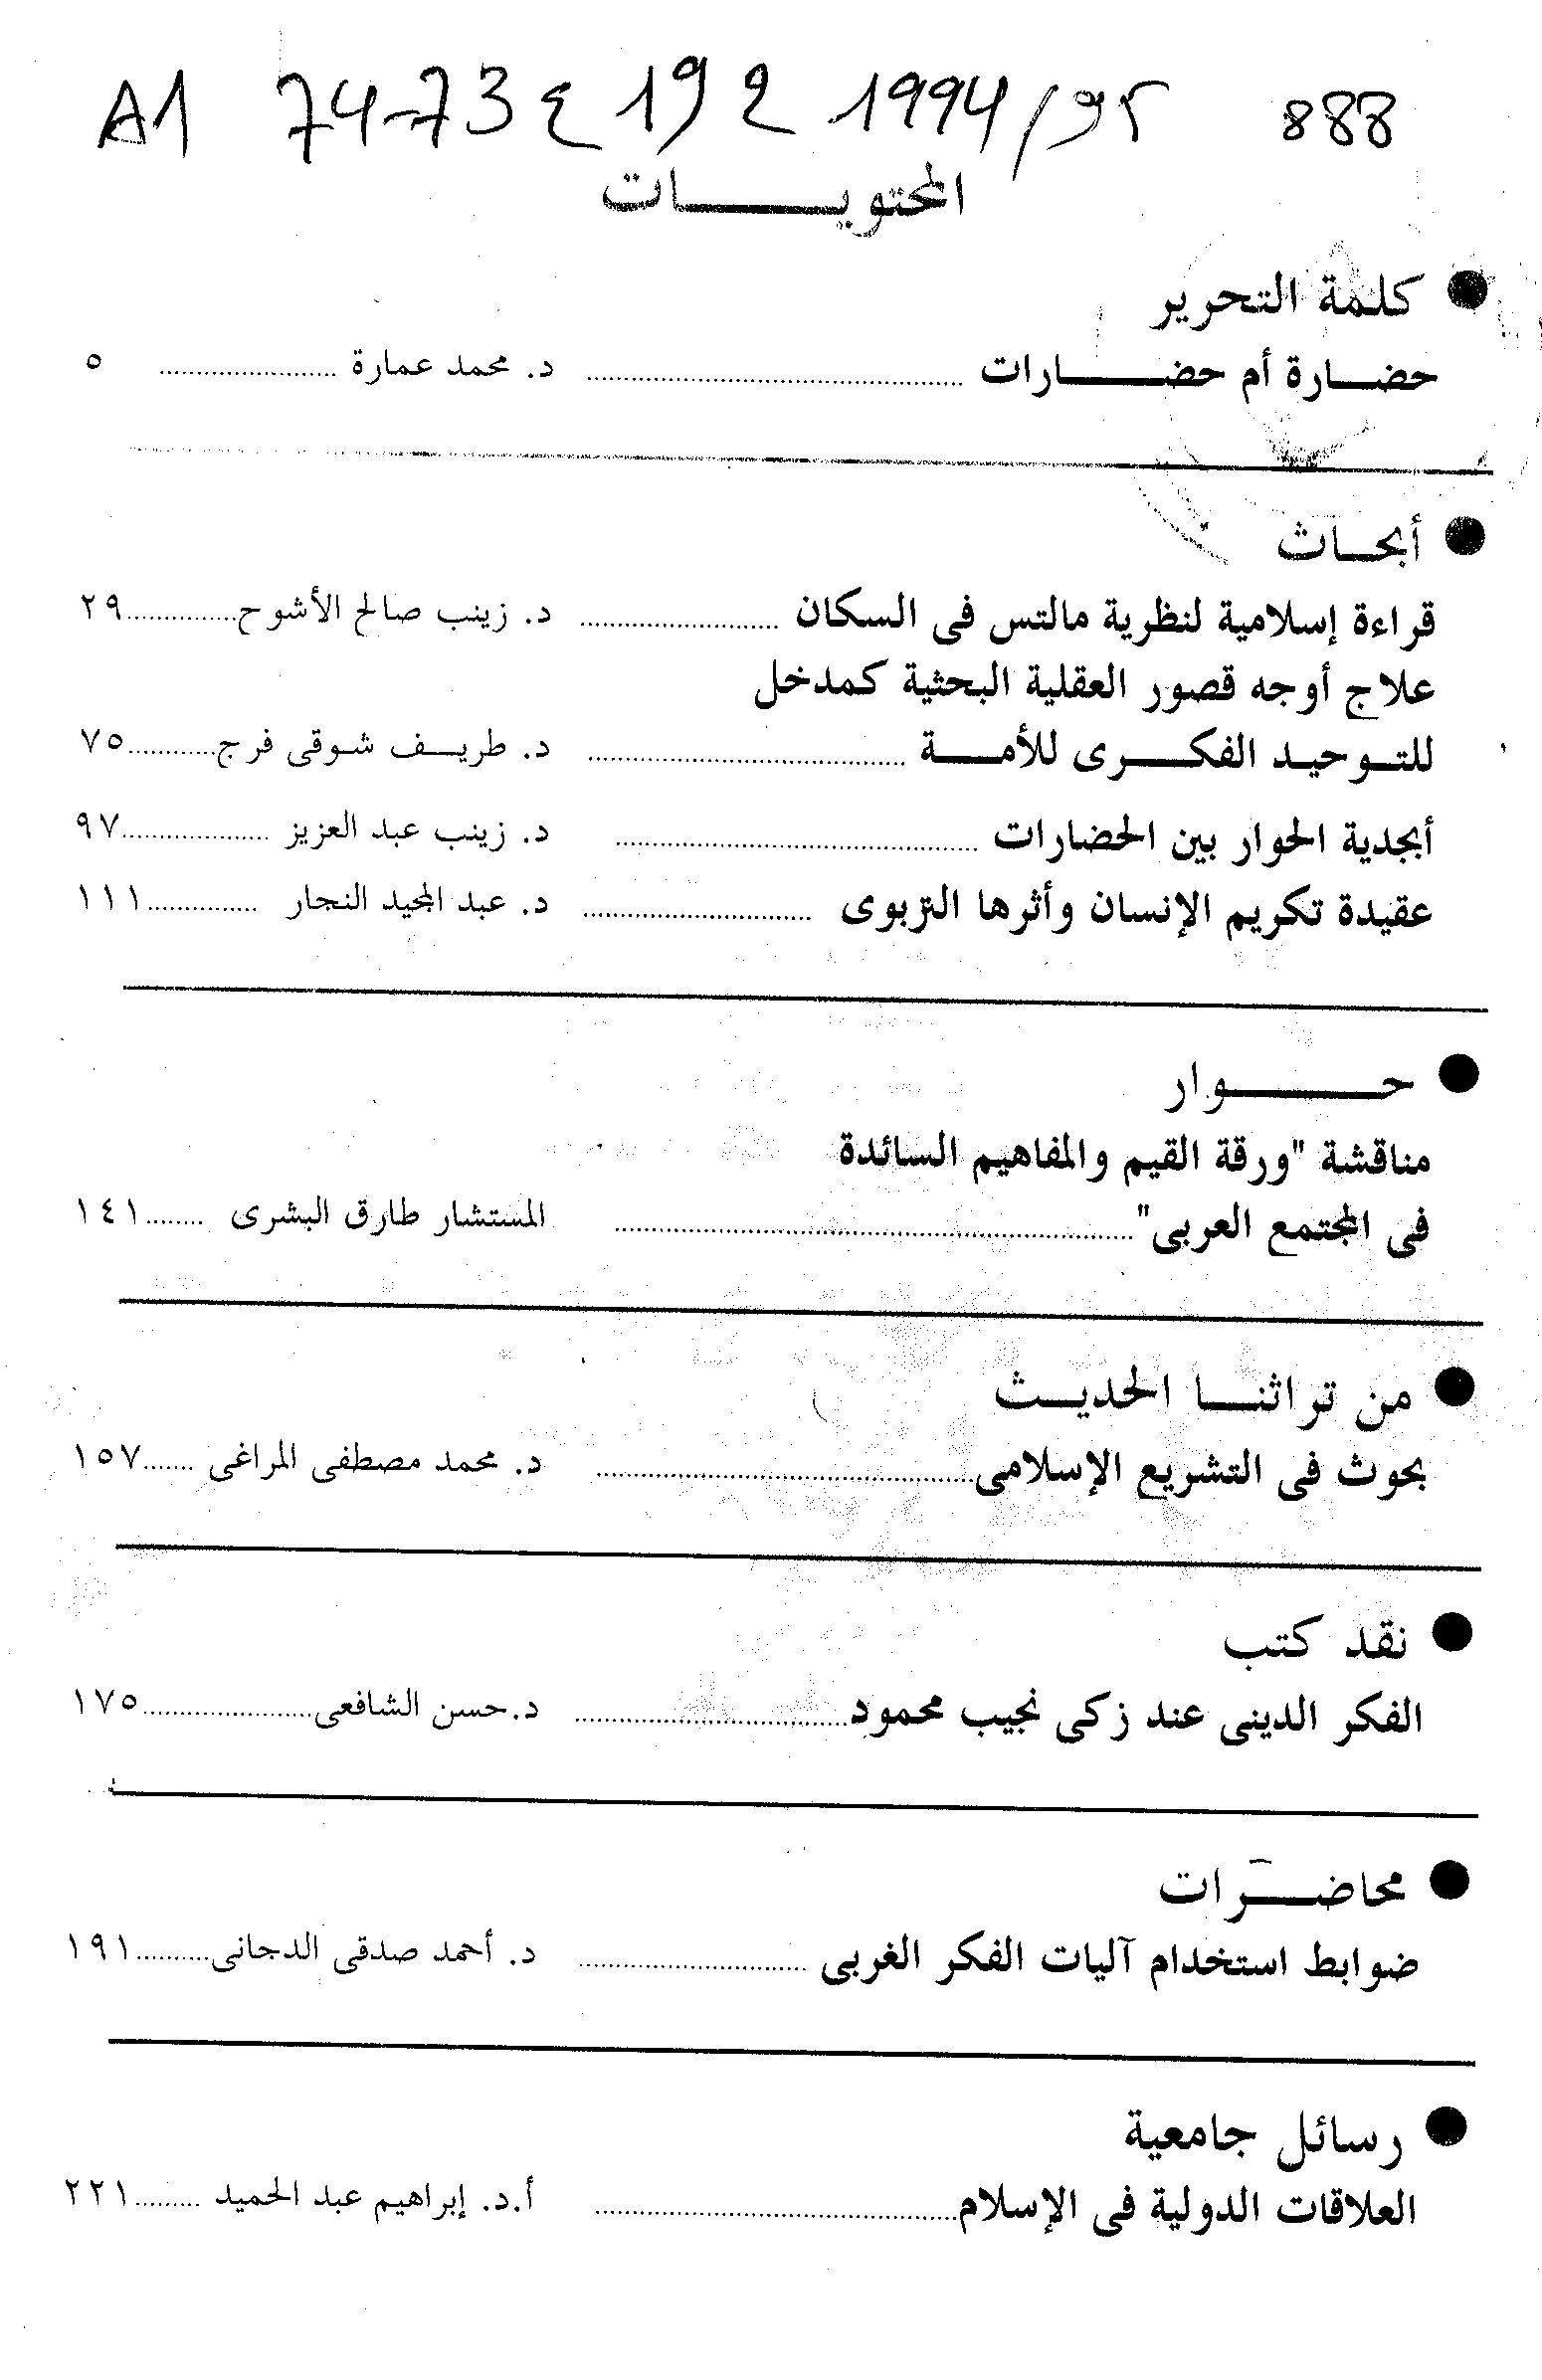 A1 74-73 ع 19 2 1994/95 888
المحتويات
● كلمة التحرير
حضارة أم حضارات ........ د. محمد عمارة ........ ٥
● أبحاث
قراءة إسلامية لنظرية مالتس فى السكان ........ د. زينب صالح الأشوح ........ ٢٩
علاج أوجه قصور العقلية البحثية كمدخل
للتوحيد الفكرى للأمة ........ د. طريف شوقى فرج ........ ٧٥
أبجدية الحوار بين الحضارات ........ د. زينب عبد العزيز ........ ٩٧
عقيدة تكريم الإنسان وأثرها التربوى ........ د. عبد المجيد النجار ........ ١١١
● حوار
مناقشة "ورقة القيم والمفاهيم السائدة
فى المجتمع العربى" ........ المستشار طارق البشرى ........ ١٤١
● من تراثنا الحديث
بحوث فى التشريع الإسلامى ........ د. محمد مصطفى المراغى ........ ١٥٧
● نقد كتب
الفكر الدينى عند زكى نجيب محمود ........ د.حسن الشافعى ........ ١٧٥
● محاضرات
ضوابط استخدام آليات الفكر الغربى ........ د. أحمد صدقى الدجانى ........ ١٩١
● رسائل جامعية
العلاقات الدولية فى الإسلام ........ أ.د. إبراهيم عبد الحميد ........ ٢٢١